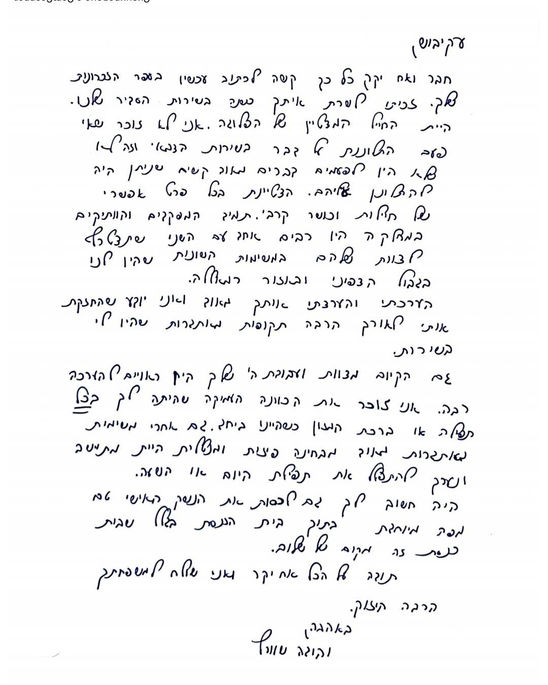 עקיבוש
חבר ואח יקר כל כך קשה לכתוב עכשיו בספר הזכרונות
שלך. זכיתי לשרת איתך כנה בשירות הסדיר שלנו.
היית החייל המצטיין של הפלוגה. אני לא זוכר שאי
פעם התלוננת על דבר בשירות הצבאי וזה לא
שלא היו לפעמים דברים מאוד קשים שניתן היה
להתלונן עליהם. הצטיינת בכל פרט אפשרי
של חיילות וכושר קרבי. תמיד המפקדים והוותיקים
במחלקה היו רבים אחד עם השני שתצטרף
לצוות שלהם במשימות השונות שהיו לנו
בגבול הצפוני ובאזור רמאללה.
הערכתי והערצתי אותך מאוד ואני יודע שהחזקת
אותי לאורך הרבה תקופות מאתגרות שהיו לי
בשירות.
גם הקיום מצוות ועבודת ה' שלך היו ראויים להערכה
רבה. אני זוכר את הכוונה העמיקה שהיתה לך בכל
תפילה או ברכת המזון כשהיינו ביחד. גם אחרי משימות
מאתגרות מאוד מבחינה פיזית ומנטלית היית מתייצב
ונעמד להתפלל את תפילת היום או השעה.
היה חשוב לך גם לכסות את הנשק האישי עם
מפה מיוחדת בתוך בית הכנסת בגלל שבית
כנסת זה מקום של שלום.
תודה על הכל אח יקר ואני שולח למשפחתך
הרבה חיזוק.
באהבה
יהודה שוורץ